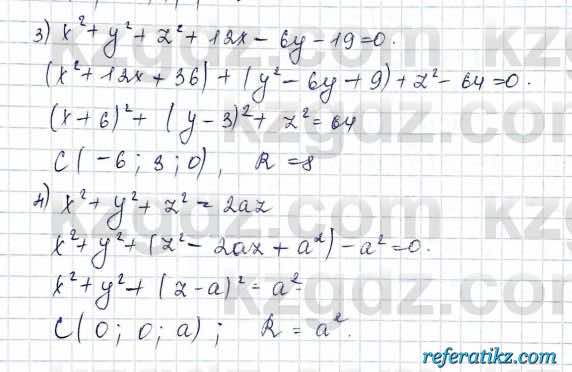 3) x² + y² + z² + 12x - 6y - 19 = 0.
(x² + 12x + 36) + (y² - 6y + 9) + z² - 64 = 0.
(x + 6)² + (y - 3)² + z² = 64
C(-6; 3; 0), R = 8
4) x² + y² + z² = 2az
x² + y² + (z² - 2az + a²) - a² = 0.
x² + y² + (z - a)² = a²
C(0; 0; a); R = a².
kzgdz.com
referatikz.com